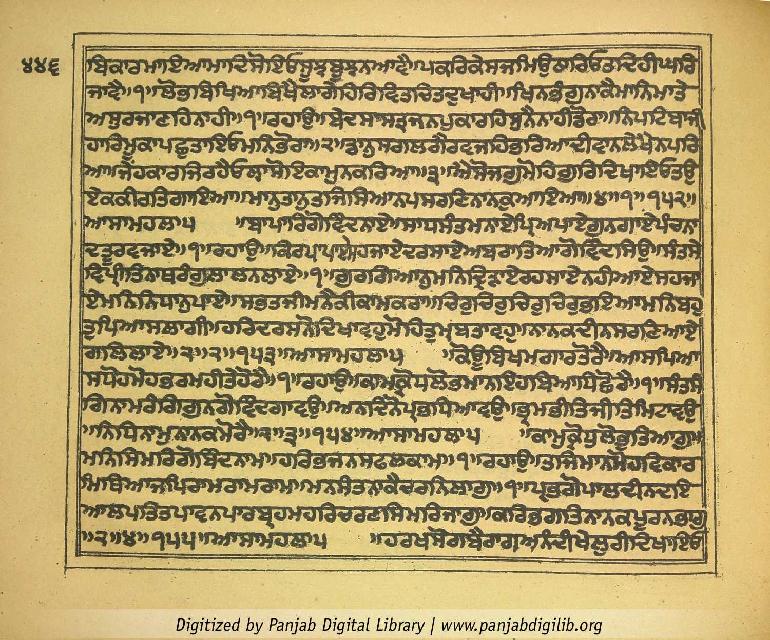 ੪੪੬
ਬਿਕਾਰਮਾਇਆਮਾਦਿਸੋਇਓਸੂਝਬੂਝਨਆਵੈ॥ਪਕਰਿਕੇਸਜਮਿਉਠਾਰਿਓਤਦਹੀਘਰਿ
ਜਾਵੈ॥੧॥ਲੋਭਬਿਖਿਆਬਿਖੈਲਾਗੇਹਿਰਿਵਿਤਚਿਤਦੁਖਾਹੀ॥ਖਿਨਭੰਗੁਨਾਕੈਮਾਨਿਮਾਤੇ
ਅਸੁਰਜਾਣਹਿਨਾਹੀ॥੧॥ਰਹਾਉ॥ਬੇਦਸਾਸਤ੍ਰਜਨਪੁਕਾਰਹਿਸੁਨੈਨਾਹੀਡੋਰਾ॥ਨਿਪਟਿਬਾਜੀ
ਹਾਰਿਮੂਕਾਪਛੁਤਾਇਓਮਨਿਭੋਰਾ॥੨॥ਡਾਨੁਸਗਲਗੈਰਵਜਹਿਭਰਿਆਦੀਵਾਨਲੇਖੈਨਪਰਿ
ਆ॥ਜੇਂਹਕਾਰਜਿਰਹੈਓਲ੍ਹਾਸੋਇਕਾਮੁਨਕਰਿਆ॥੩॥ਐਸੋਜਗੁਮੋਹਿਗੁਰਿਦਿਖਾਇਓਤਉ
ਏਕਕੀਰਤਿਗਾਇਆ॥ਮਾਨੁਤਾਨੁਤਜਿਸਿਆਨਪਸਰਣਿਨਾਨਕੁਆਇਆ॥੪॥੧॥੧੫੨॥
ਆਸਾਮਹਲਾ੫ ॥ਬਾਪਾਰਿਗੋਵਿੰਦਨਾਏ॥ਸਾਧਸੰਤਮਨਾਏਪ੍ਰਿਅਪਾਏਗੁਨਗਾਏਪੰਚਨਾ
ਦਤੂਰਬਜਾਏ॥੧॥ਰਹਾਉ॥ਕਿਰਪਾਪਾਏਸਹਜਾਏਦਰਸਾਏਅਬਰਾਤਿਆਗੋਵਿੰਦਸਿਉ॥ਸੰਤਸੇ
ਵਿਪ੍ਰੀਤਿਨਾਥਰੰਗੁਲਾਲਨਲਾਏ॥੧॥ਗੁਰਗਿਆਨੁਮਨਿਦ੍ਰਿੜਾਏਰਹਸਾਏਨਹੀਆਏਸਹਜਾ
ਏਮਨਿਨਿਧਾਨੁਪਾਏ॥ਸਭਤਜੀਮਨੈਕੀਕਾਮਕਰਾ॥ਚਿਰੁਚਿਰੁਚਿਰੁਚਿਰੁਭਇਆਮਨਿਬਹੁ
ਤੁਪਿਆਸਲਾਗੀ॥ਹਰਿਦਰਸਨੋਦਿਖਾਵਹੁਮੋਹਿਤੁਮਬਤਾਵਹੁ॥ਨਾਨਕਦੀਨਸਰਣਿਆਏ
ਗਲਿਲਾਏ॥੨॥੨॥੧੫੩॥ਆਸਾਮਹਲਾ੫ ॥ਕੋਊਬਿਖਮਗਾਰਤੋਰੈ॥ਆਸਪਿਆ
ਸਧੋਹਮੋਹਭਰਮਹੀਤੇਹੋਰੈ॥੧॥ਰਹਾਉ॥ਕਾਮਕ੍ਰੋਧਲੋਭਮਾਨਇਹਬਿਆਧਿਛੋਰੈ॥੧॥ਸੰਤਸੰ
ਗਿਨਾਮਰੰਗਿਗੁਨਗੋਵਿੰਦਗਾਵਉ॥ਅਨਦਿਨੋਪ੍ਰਭਧਿਆਵਉ॥ਭ੍ਰਮਭੀਤਿਜੀਤਿਮਿਟਾਵਉ
॥ਨਿਧਿਨਾਮੁਨਾਨਕਮੋਰੈ॥੨॥੩॥੧੫੪॥ਆਸਾਮਹਲਾ੫ ॥ਕਾਮੁਕ੍ਰੋਧੁਲੋਭੁਤਿਆਗੁ॥
ਮਨਿਸਿਮਰਿਗੋਬਿੰਦਨਾਮ॥ਹਰਿਭਜਨਸਫਲਕਾਮ॥੧॥ਰਹਾਉ॥ਤਜਿਮਾਨਮੋਹਵਿਕਾਰ
ਮਿਥਿਆਜਪਿਰਾਮਰਾਮਰਾਮ॥ਮਨਸੰਤਨਾਕੈਚਰਨਿਲਾਗੁ॥੧॥ਪ੍ਰਭਗੋਪਾਲਦੀਨਦਇ
ਆਲਪਤਿਤਪਾਵਨਪਾਰਬ੍ਰਹਮਹਰਿਚਰਣਸਿਮਰਿਜਾਗੁ॥ਕਰਿਭਗਤਿਨਾਨਕਪੂਰਨਭਾਗੁ
॥੨॥੪॥੧੫੫॥ਆਸਾਮਹਲਾ੫ ॥ਹਰਖਸੋਗਬੈਰਾਗਅਨੰਦੀਖੇਲੁਰੀਦਿਖਾਇਓ
Digitized by Panjab Digital Library | www.panjabdigilib.org